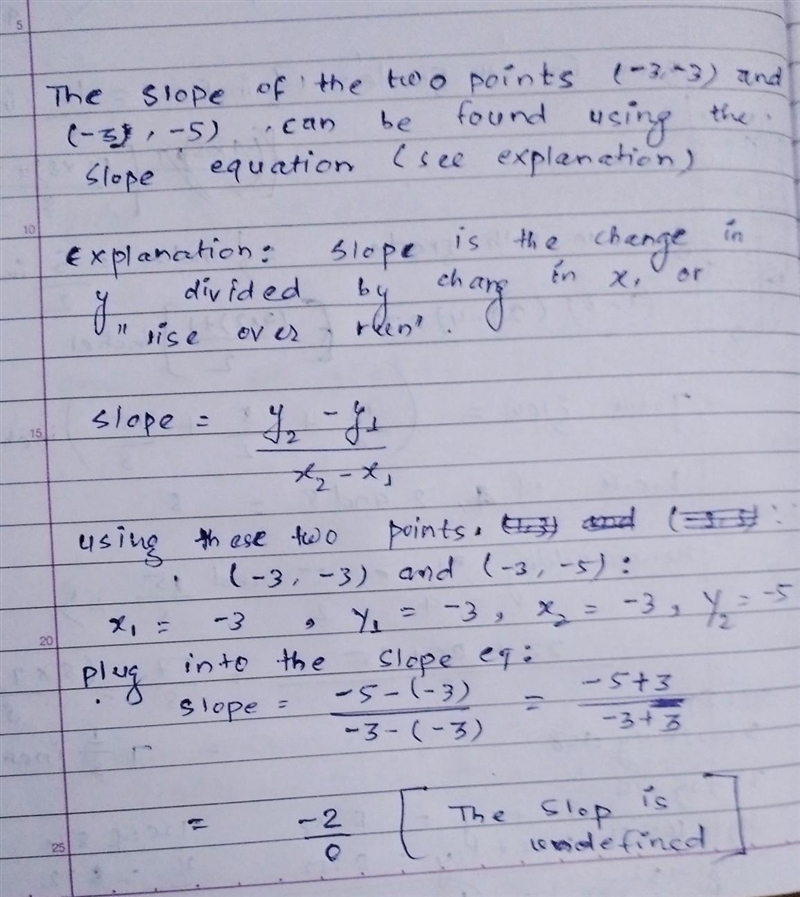 5
The slope of the two points (-3,-3) and
(-3, -5) can be found using the
slope equation (see explanation)
10
Explanation: slope is the change in
y divided by chang in x, or
"rise over run".
15
slope = y₂ - y₁ / x₂ - x₁
using these two points.
(-3, -3) and (-3, -5):
x₁ = -3, y₁ = -3, x₂ = -3, y₂ = -5
20
plug into the slope eq:
slope = -5-(-3) / -3-(-3) = -5+3 / -3+3
25
= -2/0 [The slop is
undefined]